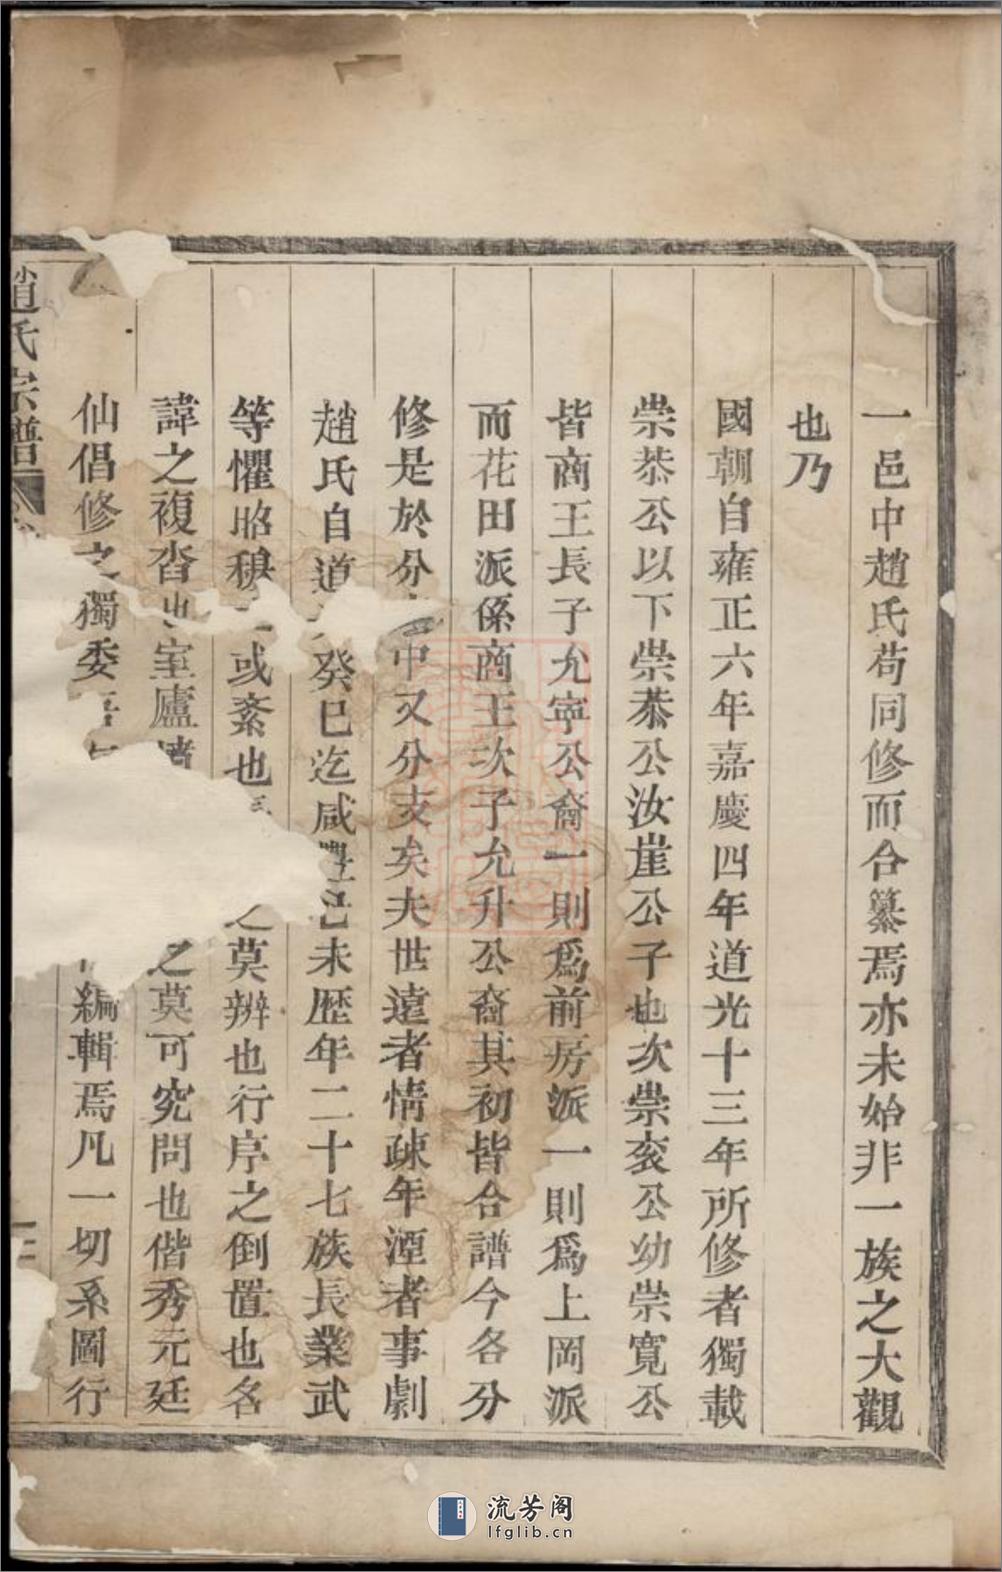 一邑中趙氏苟同修而合纂焉亦未始非一族之大觀
也乃
國朝自雍正六年嘉慶四年道光十三年所修者獨載
崇恭公以下崇恭公汝崖公子也次崇袞公幼崇寬公
皆商王長子允寧公裔一則爲前房派一則爲上岡派
而花田派係商王次子允升公裔其初皆合譜今各分
修是於分中又分支矣夫世遠者情疎年湮者事劇
趙氏自道癸巳迄咸豐己未歷年二十七族長業武
等懼昭穆或紊也之莫辨也行序之倒置也名
諱之複沓也室廬之莫可究問也偕秀元廷
仙倡修之獨委編輯焉凡一切系圖行
趙氏宗譜
流芳阁
lfglib.cn